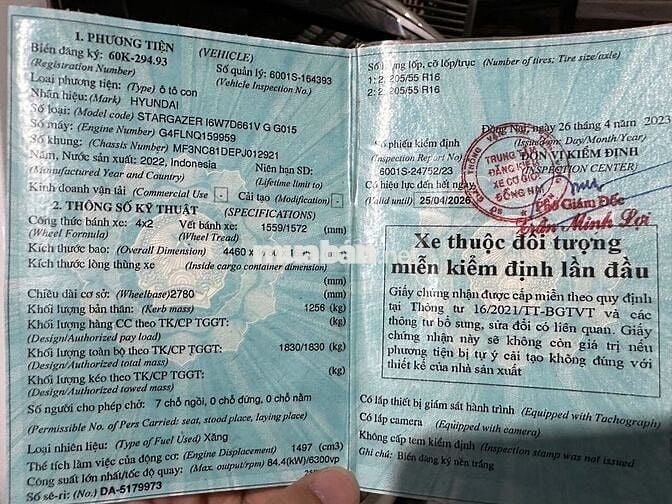 1. PHƯƠNG TIỆN (VEHICLE)
Biển đăng ký: 60K-294.93 Số quản lý: 6001S-164393
(Registration Number) (Vehicle Inspection No.)
Loại phương tiện: (Type) ô tô con
Nhãn hiệu: (Mark) HYUNDAI
Số loại: (Model code) STARGAZER I6W7D661V G G015
Số máy: (Engine Number) G4FLNQ159959
Số khung: (Chassis Number) MF3NC81DEPJ012921
Năm, Nước sản xuất: 2022, Indonesia Niên hạn SD:
(Manufactured Year and Country) (Lifetime limit to)
Kinh doanh vận tải (Commercial Use) - Cải tạo (Modification) -
2. THÔNG SỐ KỸ THUẬT (SPECIFICATIONS)
Công thức bánh xe: 4x2 Vết bánh xe: 1559/1572 (mm)
(Wheel Formula) (Wheel Tread)
Kích thước bao: (Overall Dimension) 4460 x (mm)
Kích thước lòng thùng xe (Inside cargo container dimension)
(mm)
Chiều dài cơ sở: (Wheelbase) 2780 (mm)
Khối lượng bản thân: (Kerb mass) 1256 (kg)
Khối lượng hàng CC theo TK/CP TGGT: (kg)
(Design/Authorized pay load)
Khối lượng toàn bộ theo TK/CP TGGT: 1830/1830 (kg)
(Design/Authorized total mass)
Khối lượng kéo theo TK/CP TGGT: (kg)
(Design/Authorized towed mass)
Số người cho phép chở: 7 chỗ ngồi, 0 chỗ đứng, 0 chỗ nằm
(Permissible No. of Pers Carried: seat, stood place, laying place)
Loại nhiên liệu: (Type of Fuel Used) Xăng
Thể tích làm việc của động cơ: (Engine Displacement) 1497 (cm3)
Công suất lớn nhất/tốc độ quay: (Max. output/rpm) 84.4(kW)/6300vp
Số sê-ri: (No.) DA-5179973
Số lượng lốp, cỡ lốp/trục (Number of tires; Tire size/axle)
1: 2, 205/55 R16
2: 2, 205/55 R16
Đồng Nai, ngày 26 tháng 4 năm 2023
(Issued on: Day/Month/Year)
Số phiếu kiểm định ĐƠN VỊ KIỂM ĐỊNH
(Inspection Report No) (INSPECTION CENTER)
6001S-24752/23
Có hiệu lực đến hết ngày
(Valid until) 25/04/2026
TRUNG TÂM
ĐĂNG KIỂM
XE CƠ GIỚI
ĐỒNG NAI
Phó Giám Đốc
Trần Minh Lợi
Xe thuộc đối tượng
miễn kiểm định lần đầu
Giấy chứng nhận được cấp miễn theo quy định
tại Thông tư 16/2021/TT-BGTVT và các
thông tư bổ sung, sửa đổi có liên quan. Giấy
chứng nhận này sẽ không còn giá trị nếu
phương tiện bị tự ý cải tạo không đúng với
thiết kế của nhà sản xuất
Có lắp thiết bị giám sát hành trình (Equipped with Tachograph)
Có lắp camera (Equipped with camera)
Không cấp tem kiểm định (Inspection stamp was not issued
Ghi chú: Biển đăng ký nền trắng
muaban